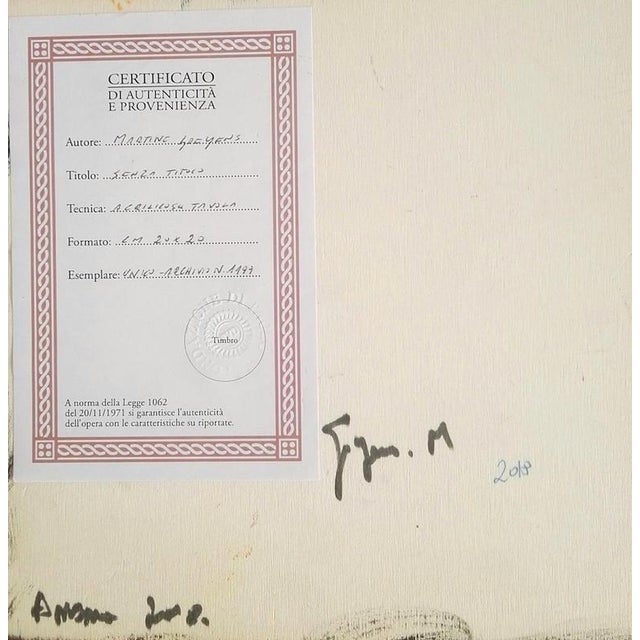 CERTIFICATO
DI AUTENTICITÀ
E PROVENIENZA
Autore: MARTINE GOEYENS
Titolo: SENZA TITOLO
Tecnica: ACRILICO SU TAVOLA
Formato: CM 20X20
Esemplare: UNICO - ARCHIVIO N 1997
Timbro
A norma della Legge 1062
del 20/11/1971 si garantisce l'autenticità
dell'opera con le caratteristiche su riportate.
M
2018